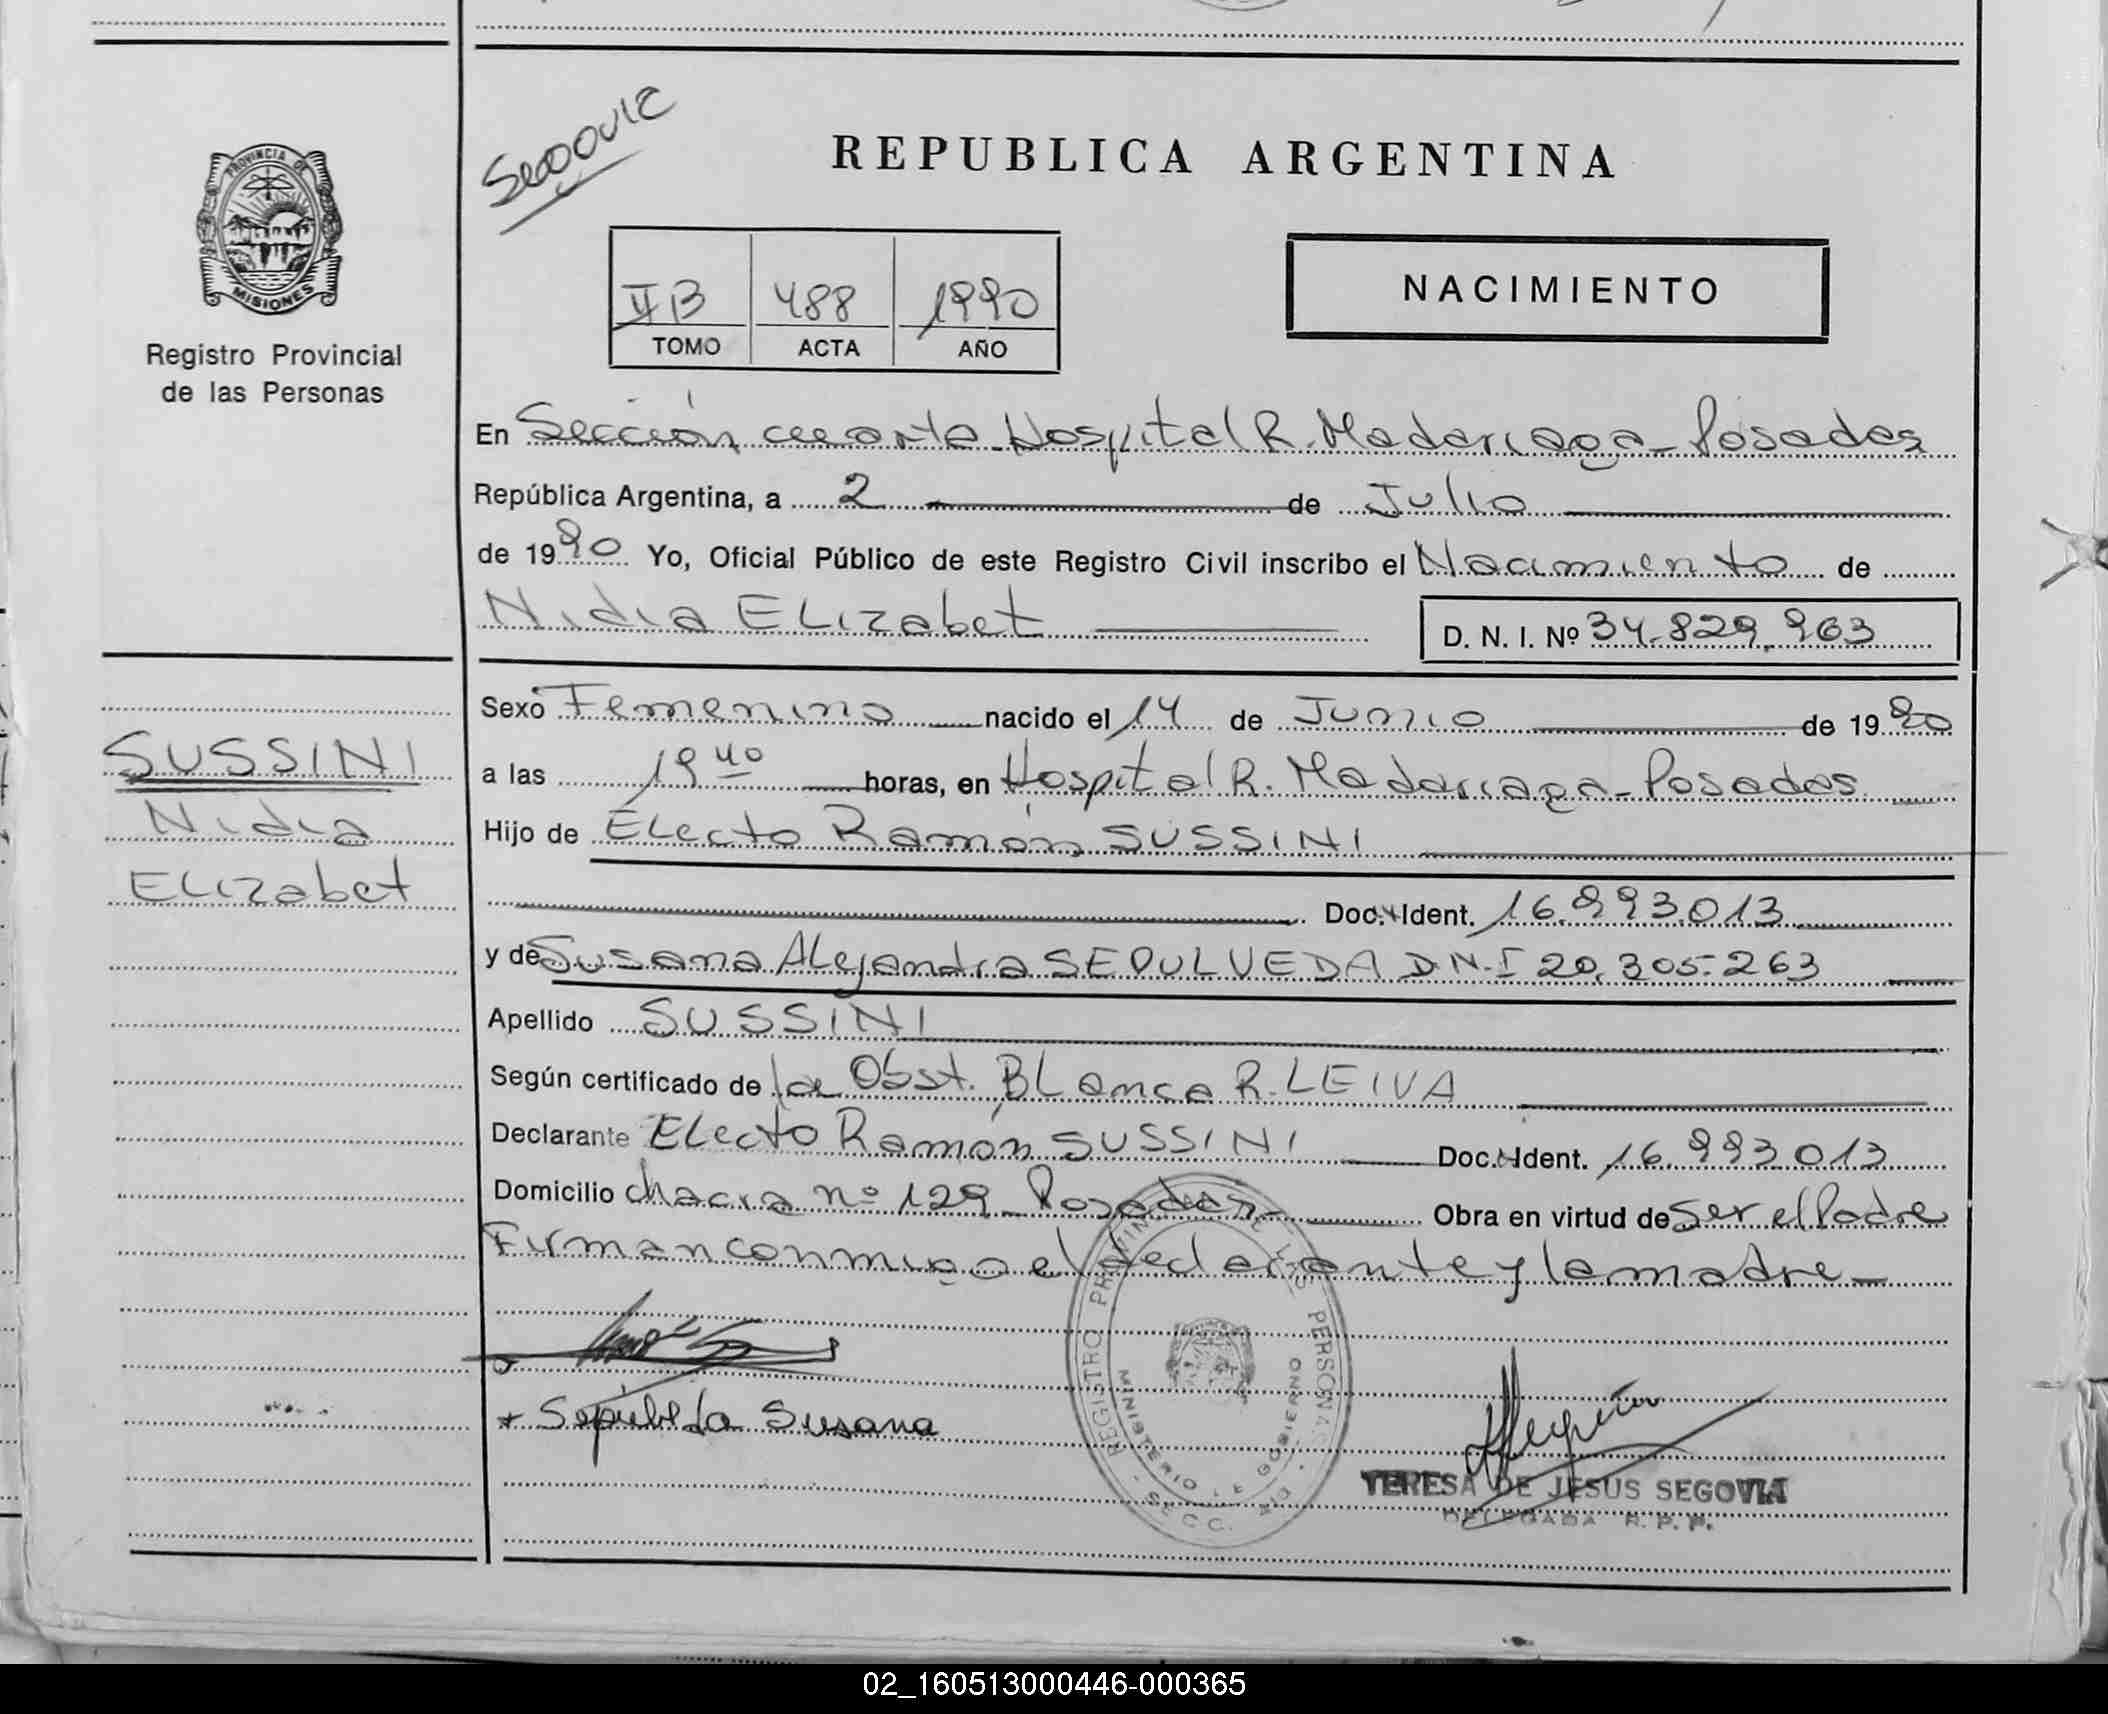 Segovia
REPUBLICA ARGENTINA
PROVINCIA DE MISIONES
Registro Provincial
de las Personas
II B 488 1990
TOMO ACTA AÑO
NACIMIENTO
En Sección cuarta Hospital R. Madariaga - Posadas
República Argentina, a 2 de Julio
de 1990 Yo, Oficial Público de este Registro Civil inscribo el Nacimiento de
Nidia Elizabet D. N. I. Nº 34.829.963
SUSSINI
Nidia
Elizabet
Sexo Femenino nacido el 14 de Junio de 1990
a las 19 40 horas, en Hospital R. Madariaga - Posadas
Hijo de Electo Ramón SUSSINI
Doc. Ident. 16.993.013
y de Susana Alejandra SEPULVEDA D.N.I 20.305.263
Apellido SUSSINI
Según certificado de la Obst. Blanca R. LEIVA
Declarante Electo Ramón SUSSINI Doc. Ident. 16.993.013
Domicilio chacra nº 129 - Posadas - Obra en virtud de ser el Padre
Firman conmigo el declarante y la madre -
Susana
REGISTRO PROVINCIAL DE LAS PERSONAS
MINISTERIO DE GOBIERNO
SECC. 4
TERESA DE JESUS SEGOVIA
DELEGADA R. P. P.
02_160513000446-000365